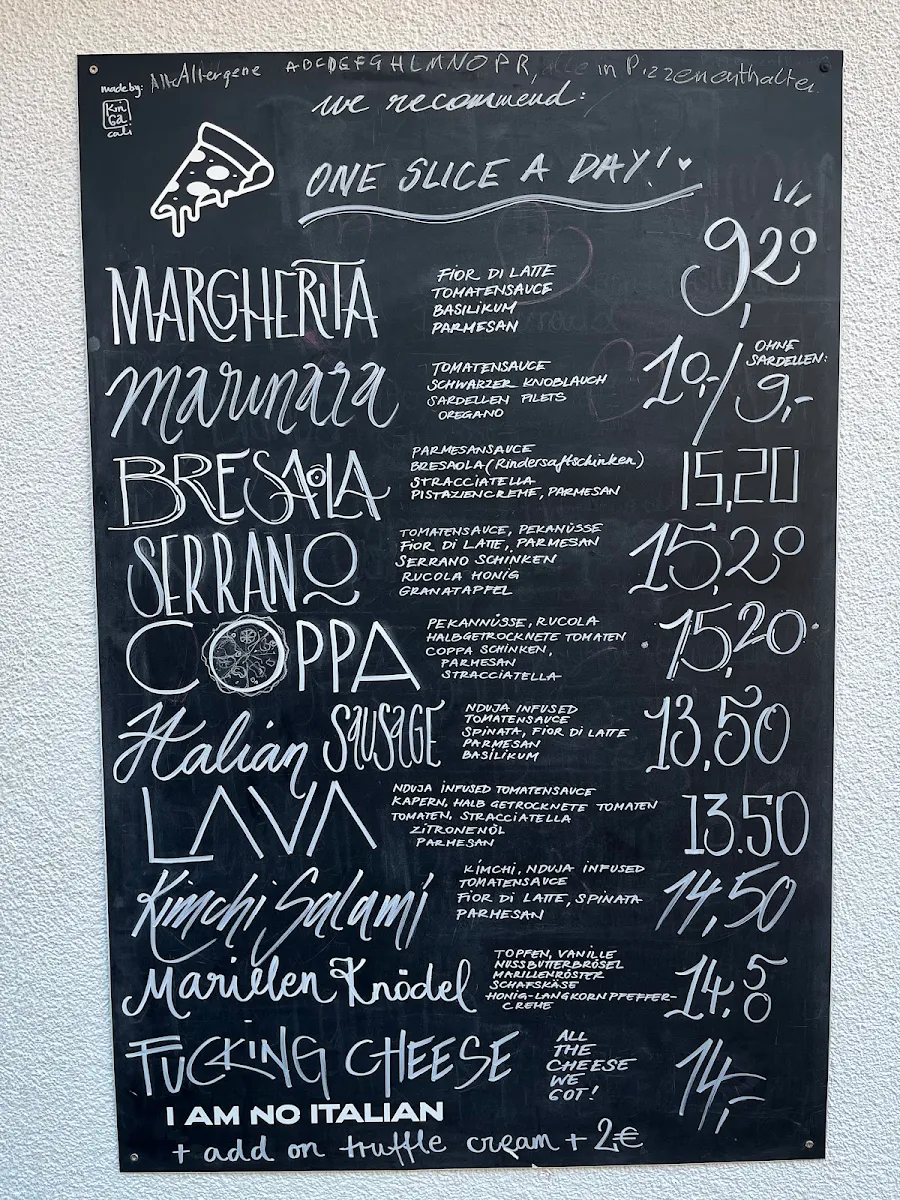 made by:
Kin
Ga
cali
Alle Allergene ABCDEFGHLMNOPR, alle in Pizzen enthalten
we recommend:
ONE SLICE A DAY!
MARGHERITA
FIOR DI LATTE
TOMATENSAUCE
BASILIKUM
PARMESAN
9,20
marinara
TOMATENSAUCE
SCHWARZER KNOBLAUCH
SARDELLEN FILETS
OREGANO
10,-/
OHNE
SARDELLEN:
9,-
BRESAOLA
PARMESANSAUCE
BRESAOLA (Rindersaftschinken)
STRACCIATELLA
PISTAZIENCREME, PARMESAN
15,20
SERRANO
TOMATENSAUCE, PEKANÜSSE
FIOR DI LATTE, PARMESAN
SERRANO SCHINKEN
RUCOLA HONIG
GRANATAPFEL
15,20
COPPA
PEKANNÜSSE, RUCOLA
HALBGETROCKNETE TOMATEN
COPPA SCHINKEN,
PARMESAN
STRACCIATELLA
15,20
Italian SAUSAGE
NDUJA INFUSED
TOMATENSAUCE
SPINATA, FIOR DI LATTE
PARMESAN
BASILIKUM
13,50
LAVA
NDUJA INFUSED TOMATENSAUCE
KAPERN, HALB GETROCKNETE TOMATEN
TOMATEN, STRACCIATELLA
ZITRONENÖL
PARMESAN
13.50
Kimchi Salami
KIMCHI, NDUJA INFUSED
TOMATENSAUCE
FIOR DI LATTE, SPINATA
PARMESAN
14,50
Marillen Knödel
TOPFEN, VANILLE
NUSSBUTTERBRÖSEL
MARILLENRÖSTER
SCHAFSKÄSE
HONIG-LANGKORNPFEFFER-
CREME
14.50
FUCKING CHEESE
ALL
THE
CHEESE
WE
GOT!
14,-
I AM NO ITALIAN
+ add on truffle cream + 2€